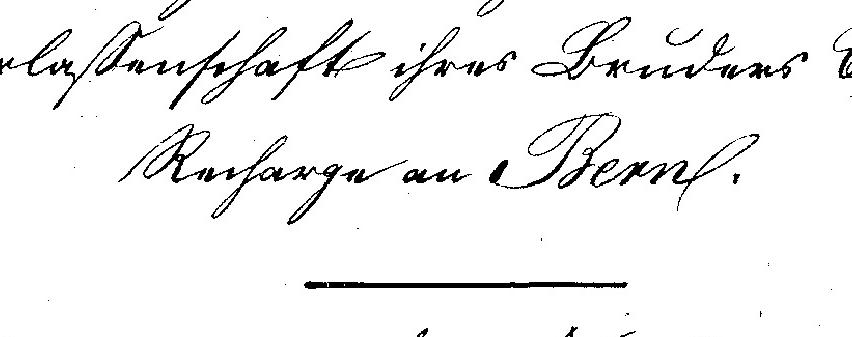 rlaßenschaft ihres Bruders
Recharge an Bern.